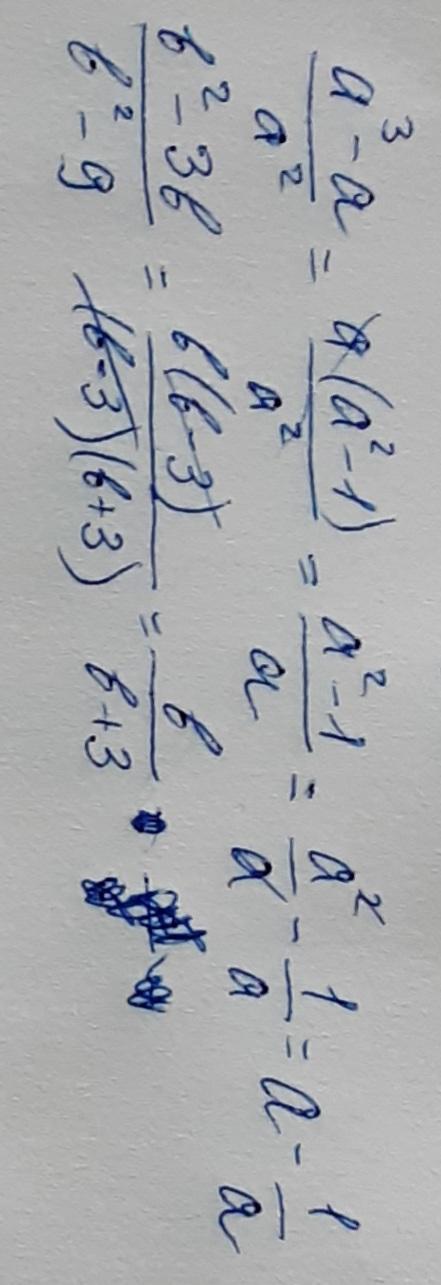 (a³ - a)/a² = a(a² - 1)/a² = (a² - 1)/a = a²/a - 1/a = a - 1/a
(b² - 3b)/(b² - 9) = b(b - 3)/((b - 3)(b + 3)) = b/(b + 3)